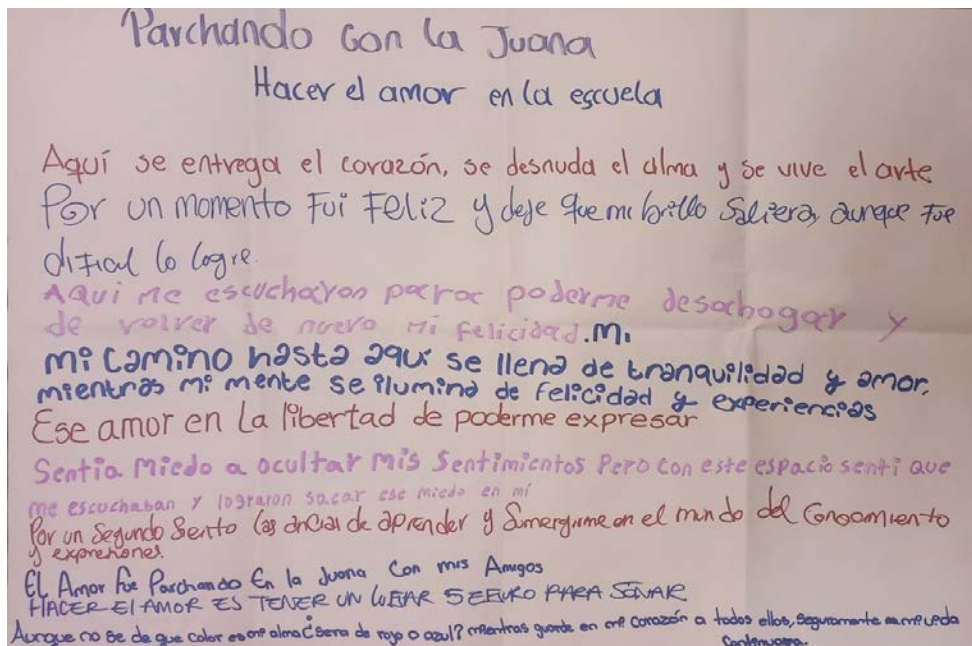 Parchando con la Juana
Hacer el amor en la escuela
Aquí se entrega el corazón, se desnuda el alma y se vive el arte
Por un momento Fui Feliz y deje que mi brillo Saliera, aunque fue
dificil lo logre.
AQui me escucharon para poderme desachogar y
de volver de nuevo mi felicidad. Mi
mi camino hasta aqui se llena de tranquilidad y amor,
mientras mi mente se ilumina de felicidad y experiencias
Ese amor en la libertad de poderme expresar
Sentia Miedo a ocultar mis Sentimientos Pero con este espacio senti que
me escuchaban y lograron sacar ese miedo en mí
Por un Segundo Sento las ancias de aprender y Sumergirme en el mundo del Conocimiento
y exprehiones
EL Amor Fue Parchando En la Juana Con mis Amigos
HACER El AMOR ES TENER UN LUGAR SEGURO PARA SOÑAR
Aunque no se de que color es mi alma ¿Sera de rojo o azul? mientras guarde en mi corazón a todos ellos, Seguramente mi
Continuara.